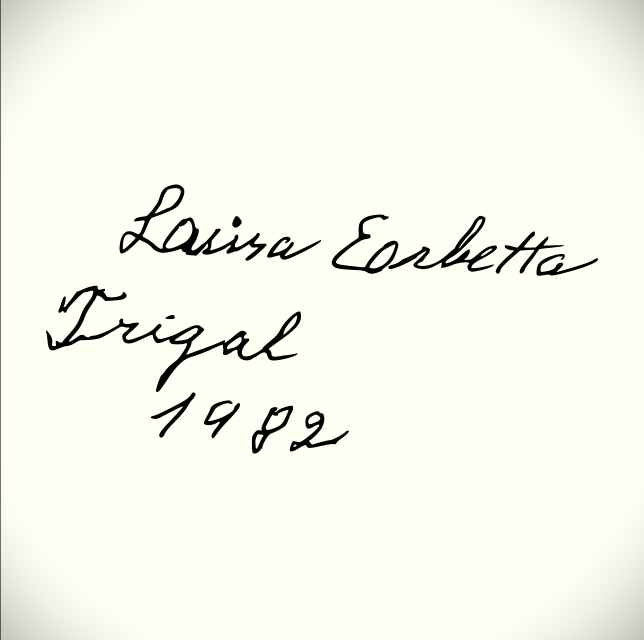 Laisa Corbetta
Trigal
1982